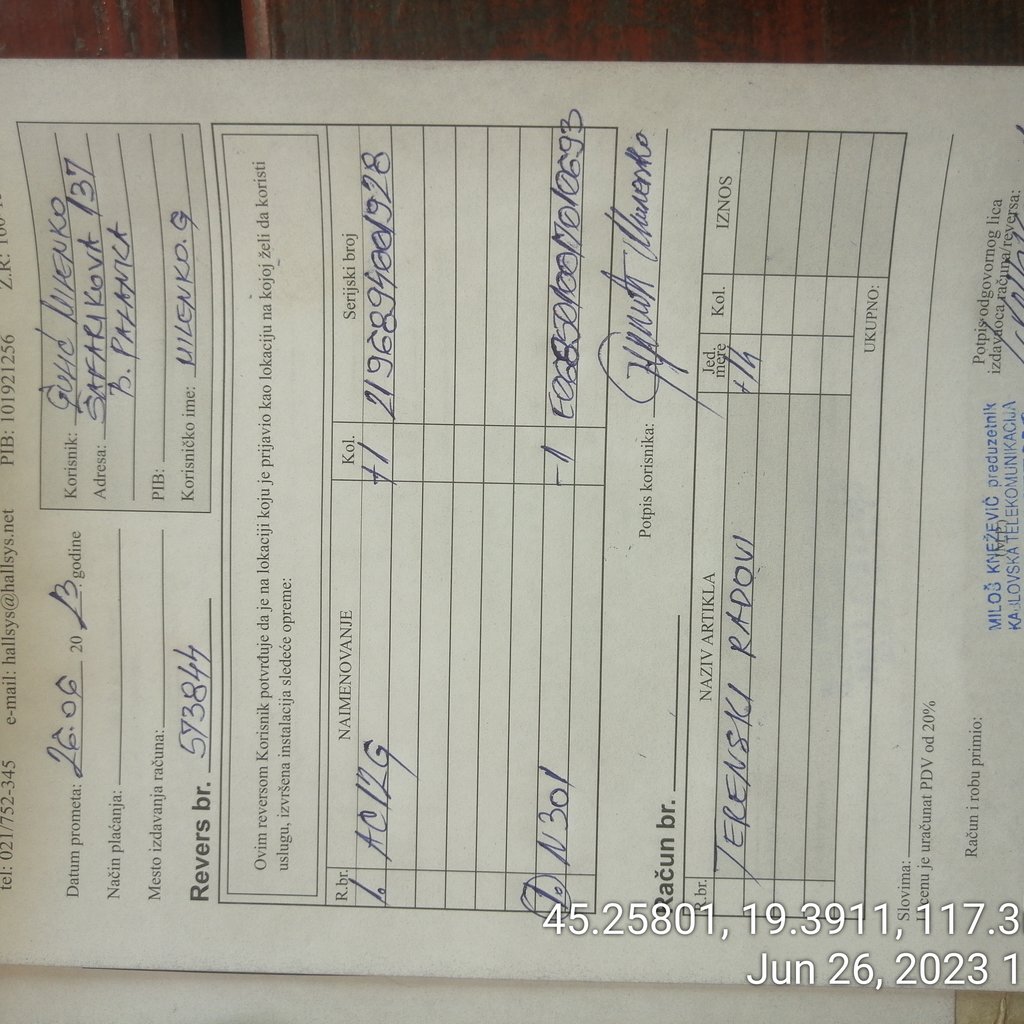 tel: 021/752-345 e-mail: hallsys@hallsys.net PIB: 101921256 Z.R:
Datum prometa: 26.06 20 23. godine
Način plaćanja:
Mesto izdavanja računa:
Korisnik: GULIĆ MILENKO
Adresa: ŠAFARIKOVA 137
B. PALANKA
PIB:
Korisničko ime: MILENKO.G
Revers br. 573844
Ovim reversom Korisnik potvrđuje da je na lokaciji koju je prijavio kao lokaciju na kojoj želi da koristi
uslugu, izvršena instalacija sledeće opreme:
R.br. NAIMENOVANJE Kol. Serijski broj
1. AC12G +1 2196894001928
1. N301 -1
Potpis korisnika:
Račun br.
R.br. NAZIV ARTIKLA Jed. mere Kol. IZNOS
TERENSKI RADOVI
UKUPNO:
Slovima:
U cenu je uračunat PDV od 20%
Račun i robu primio:
Potpis odgovornog lica
izdavaoca računa/reversa:
(M.P.)
MILOŠ KNEŽEVIĆ preduzetnik
KABLOVSKA TELEKOMUNIKACIJA
45.25801, 19.3911, 117.3
Jun 26, 2023 1